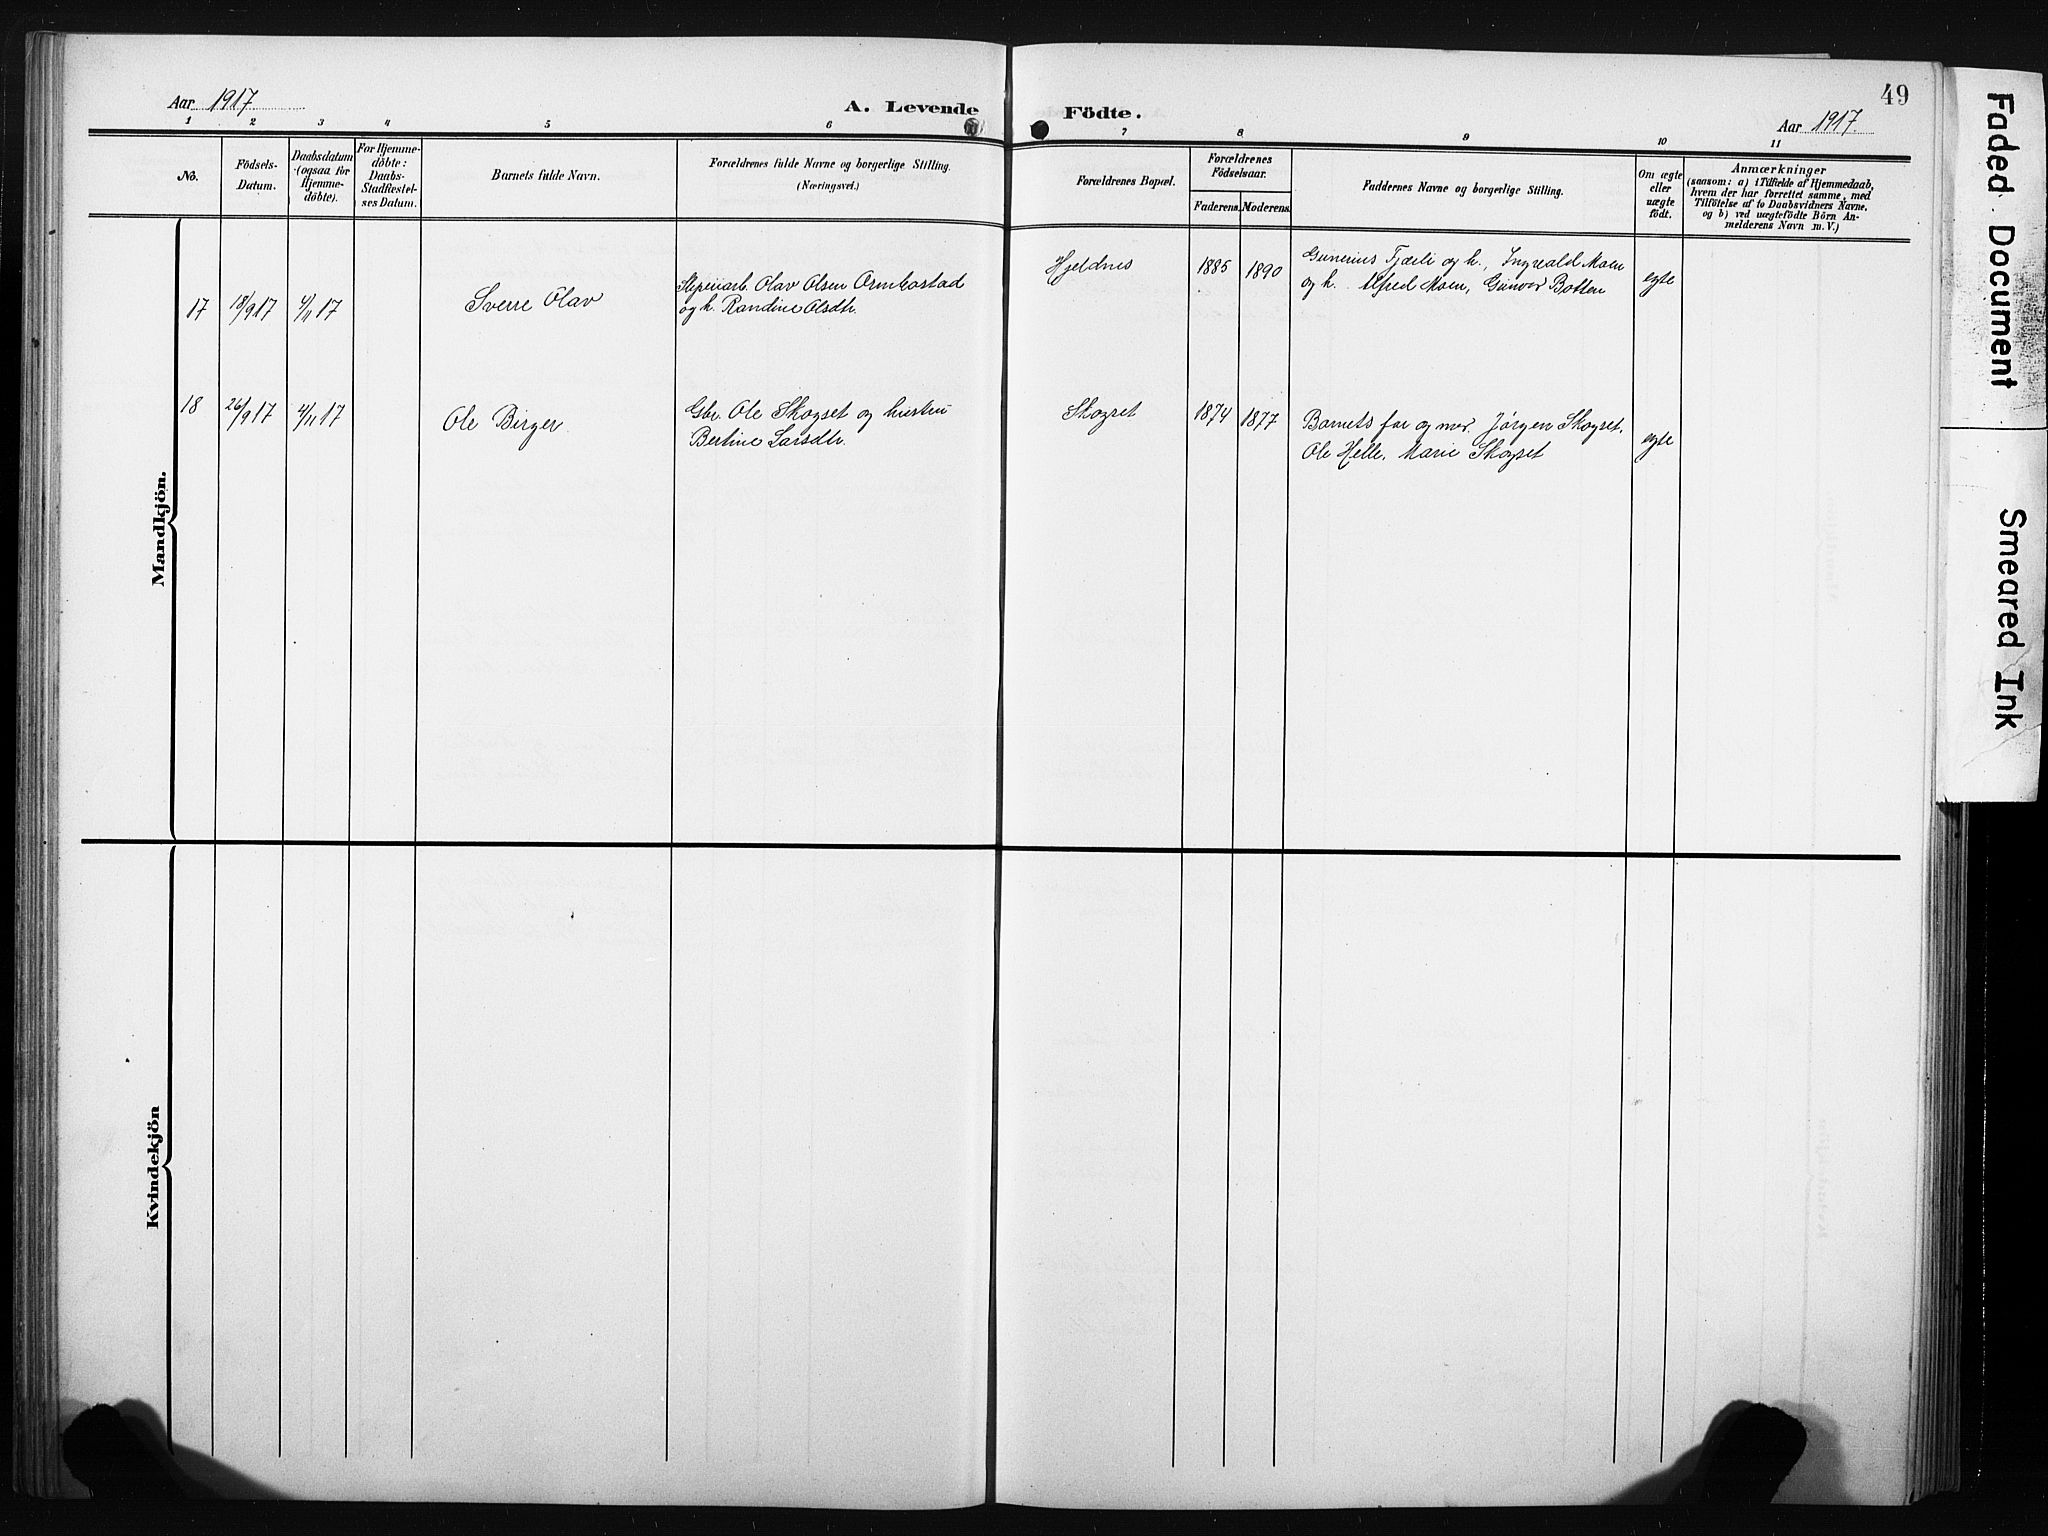 Aar 1917
A. Levende Födte.
49
Aar 1917.
1 2 3 4 5 6 7 8 9 10 11
No.
Födsels-
Datum.
Daabsdatum
(ogsaa for
Hjemme-
døbte).
For Hjemme-
döbte:
Daabs-
Stadfæstel-
ses Datum.
Barnets fulde Navn.
Forældrenes fulde Navne og borgerlige Stilling.
(Næringsvei.)
Forældrenes Bopæl.
Forældrenes
Födselsaar.
Faderens. Moderens.
Faddernes Navne og borgerlige Stilling.
Om ægte
eller
uægte
født.
Anmærkninger
(saasom: a) i Tilfælde af Hjemmedaab,
hvem der har forrettet samme, med
Tilföielse af to Daabsvidners Navne,
og b) ved uægtefödte Börn An-
melderens Navn m. V.)
Mandkjön.
17 18/9 17 4/11 17 Sverre Olav
Olav Olsen Ormbostad
og h. Randine Olsdtr.
Hjeldnes 1885 1890
Gunerius Fjærli og h., Ingvald Moen
og h. Alfred Moen, Gunvor Botten
egte
18 26/9 17 4/11 17 Ole Birger
Gbr. Ole Skogset og hustru
Bertine Larsdtr.
Skogset 1874 1877
Barnets far og mor. Jørgen Skogset.
Ole Helle. Marie Skogset
egte
Kvindekjön
Faded Document
Smeared Ink